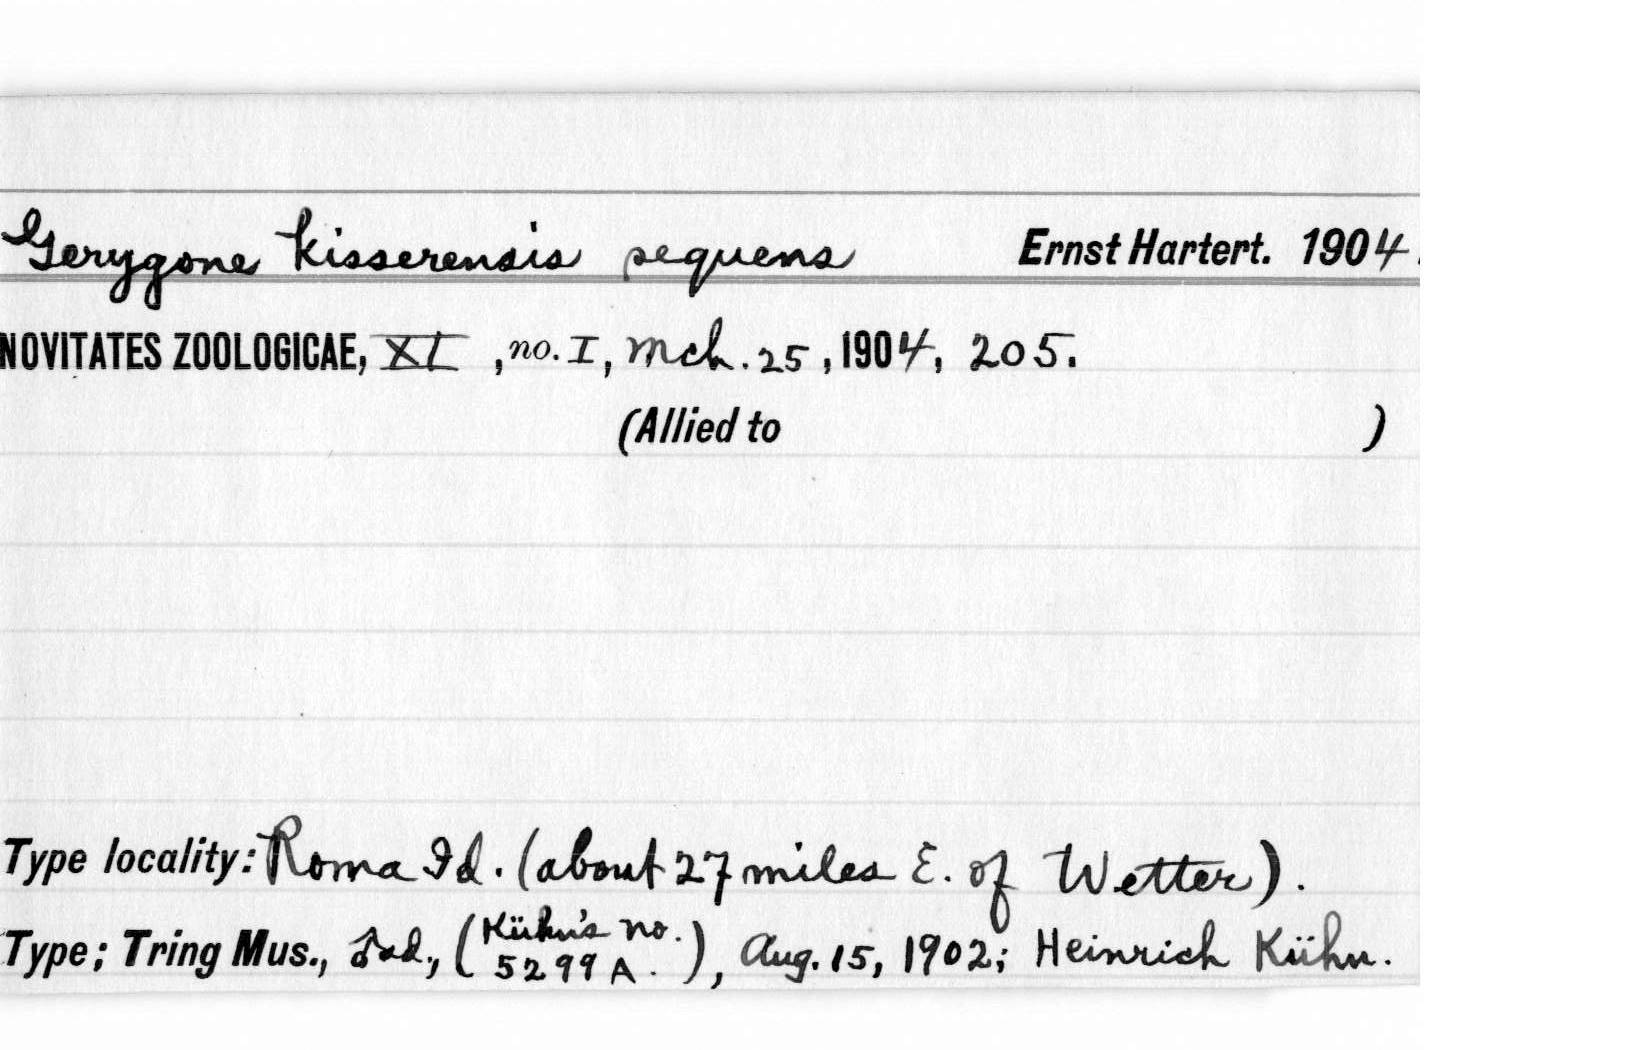 Gerygone kisserensis sequens Ernst Hartert. 1904.
NOVITATES ZOOLOGICAE, XI, no. I, Mch. 25, 1904, 205.
(Allied to )
Type locality: Roma Id. (about 27 miles E. of Wetter).
Type; Tring Mus., ♂ad., (Kühn's no. 5299A.), Aug. 15, 1902; Heinrich Kühn.